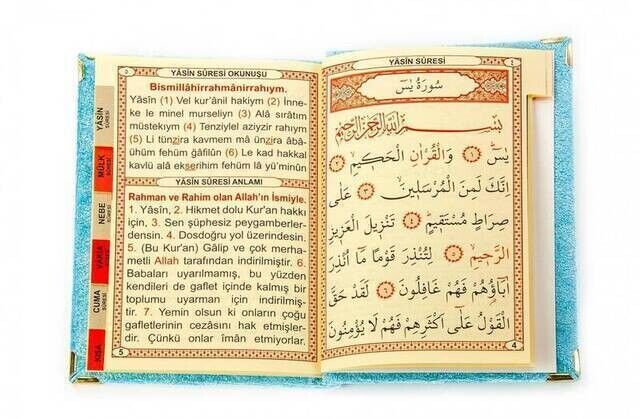 YÂSÎN SÛRESİ OKUNUŞU
Bismillâhirrahmânirrahıym.
Yâsîn (1) Vel kur'ânil hakiym (2) İnne-
ke le minel murseliyn (3) Alâ sırâtım
müstekıym (4) Tenziylel aziyzir rahıym
(5) Li tünzira kavmem mâ ünzira âbâ-
ühüm fehüm ğâfilûn (6) Le kad hakkal
kavlü alâ ekserihim fehüm lâ yü'minûn
YÂSÎN SÛRESİ ANLAMI
Rahman ve Rahim olan Allah'ın İsmiyle.
1. Yâsîn, 2. Hikmet dolu Kur'an hakkı
için, 3. Sen şüphesiz peygamberler-
densin. 4. Dosdoğru yol üzerindesin.
5. (Bu Kur'an) Gâlip ve çok merha-
metli Allah tarafından indirilmiştir. 6.
Babaları uyarılmamış, bu yüzden
kendileri de gaflet içinde kalmış bir
toplumu uyarman için indirilmiş-
tir. 7. Yemin olsun ki onların çoğu
gafletlerinin cezasını hak etmişler-
dir. Çünkü onlar îman etmiyorlar.
5
YÂSİN
SÛRESİ
MÜLK
SÛRESİ
NEBE
SÛRESİ
VÂKIA
SÛRESİ
CUMA
SÛRESİ
KISA
YÂSÎN SÛRESİ
٤
سُورَةُ يٰسٓ
بِسْمِ اللّٰهِ الرَّحْمٰنِ الرَّحٖيمِ
يٰسٓ ﴿١﴾ وَالْقُرْاٰنِ الْحَكٖيمِ ﴿٢﴾
اِنَّكَ لَمِنَ الْمُرْسَلٖينَ ﴿٣﴾ عَلٰى
صِرَاطٍ مُسْتَقٖيمٍ ﴿٤﴾ تَنْزٖيلَ الْعَزٖيزِ
الرَّحٖيمِ ﴿٥﴾ لِتُنْذِرَ قَوْمًا مَٓا اُنْذِرَ
اٰبَٓاؤُ۬هُمْ فَهُمْ غَافِلُونَ ﴿٦﴾ لَقَدْ حَقَّ
الْقَوْلُ عَلٰٓى اَكْثَرِهِمْ فَهُمْ لَا يُؤْمِنُونَ
4